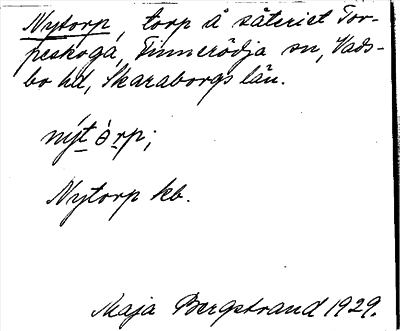 Nytorp, torp å säteriet Tor-
peskoga, Finnerödja sn, Vads-
bo hd, Skaraborgs län.
nýt ò̀rp;
Nytorp kb.
Maja Bergstrand 1929.